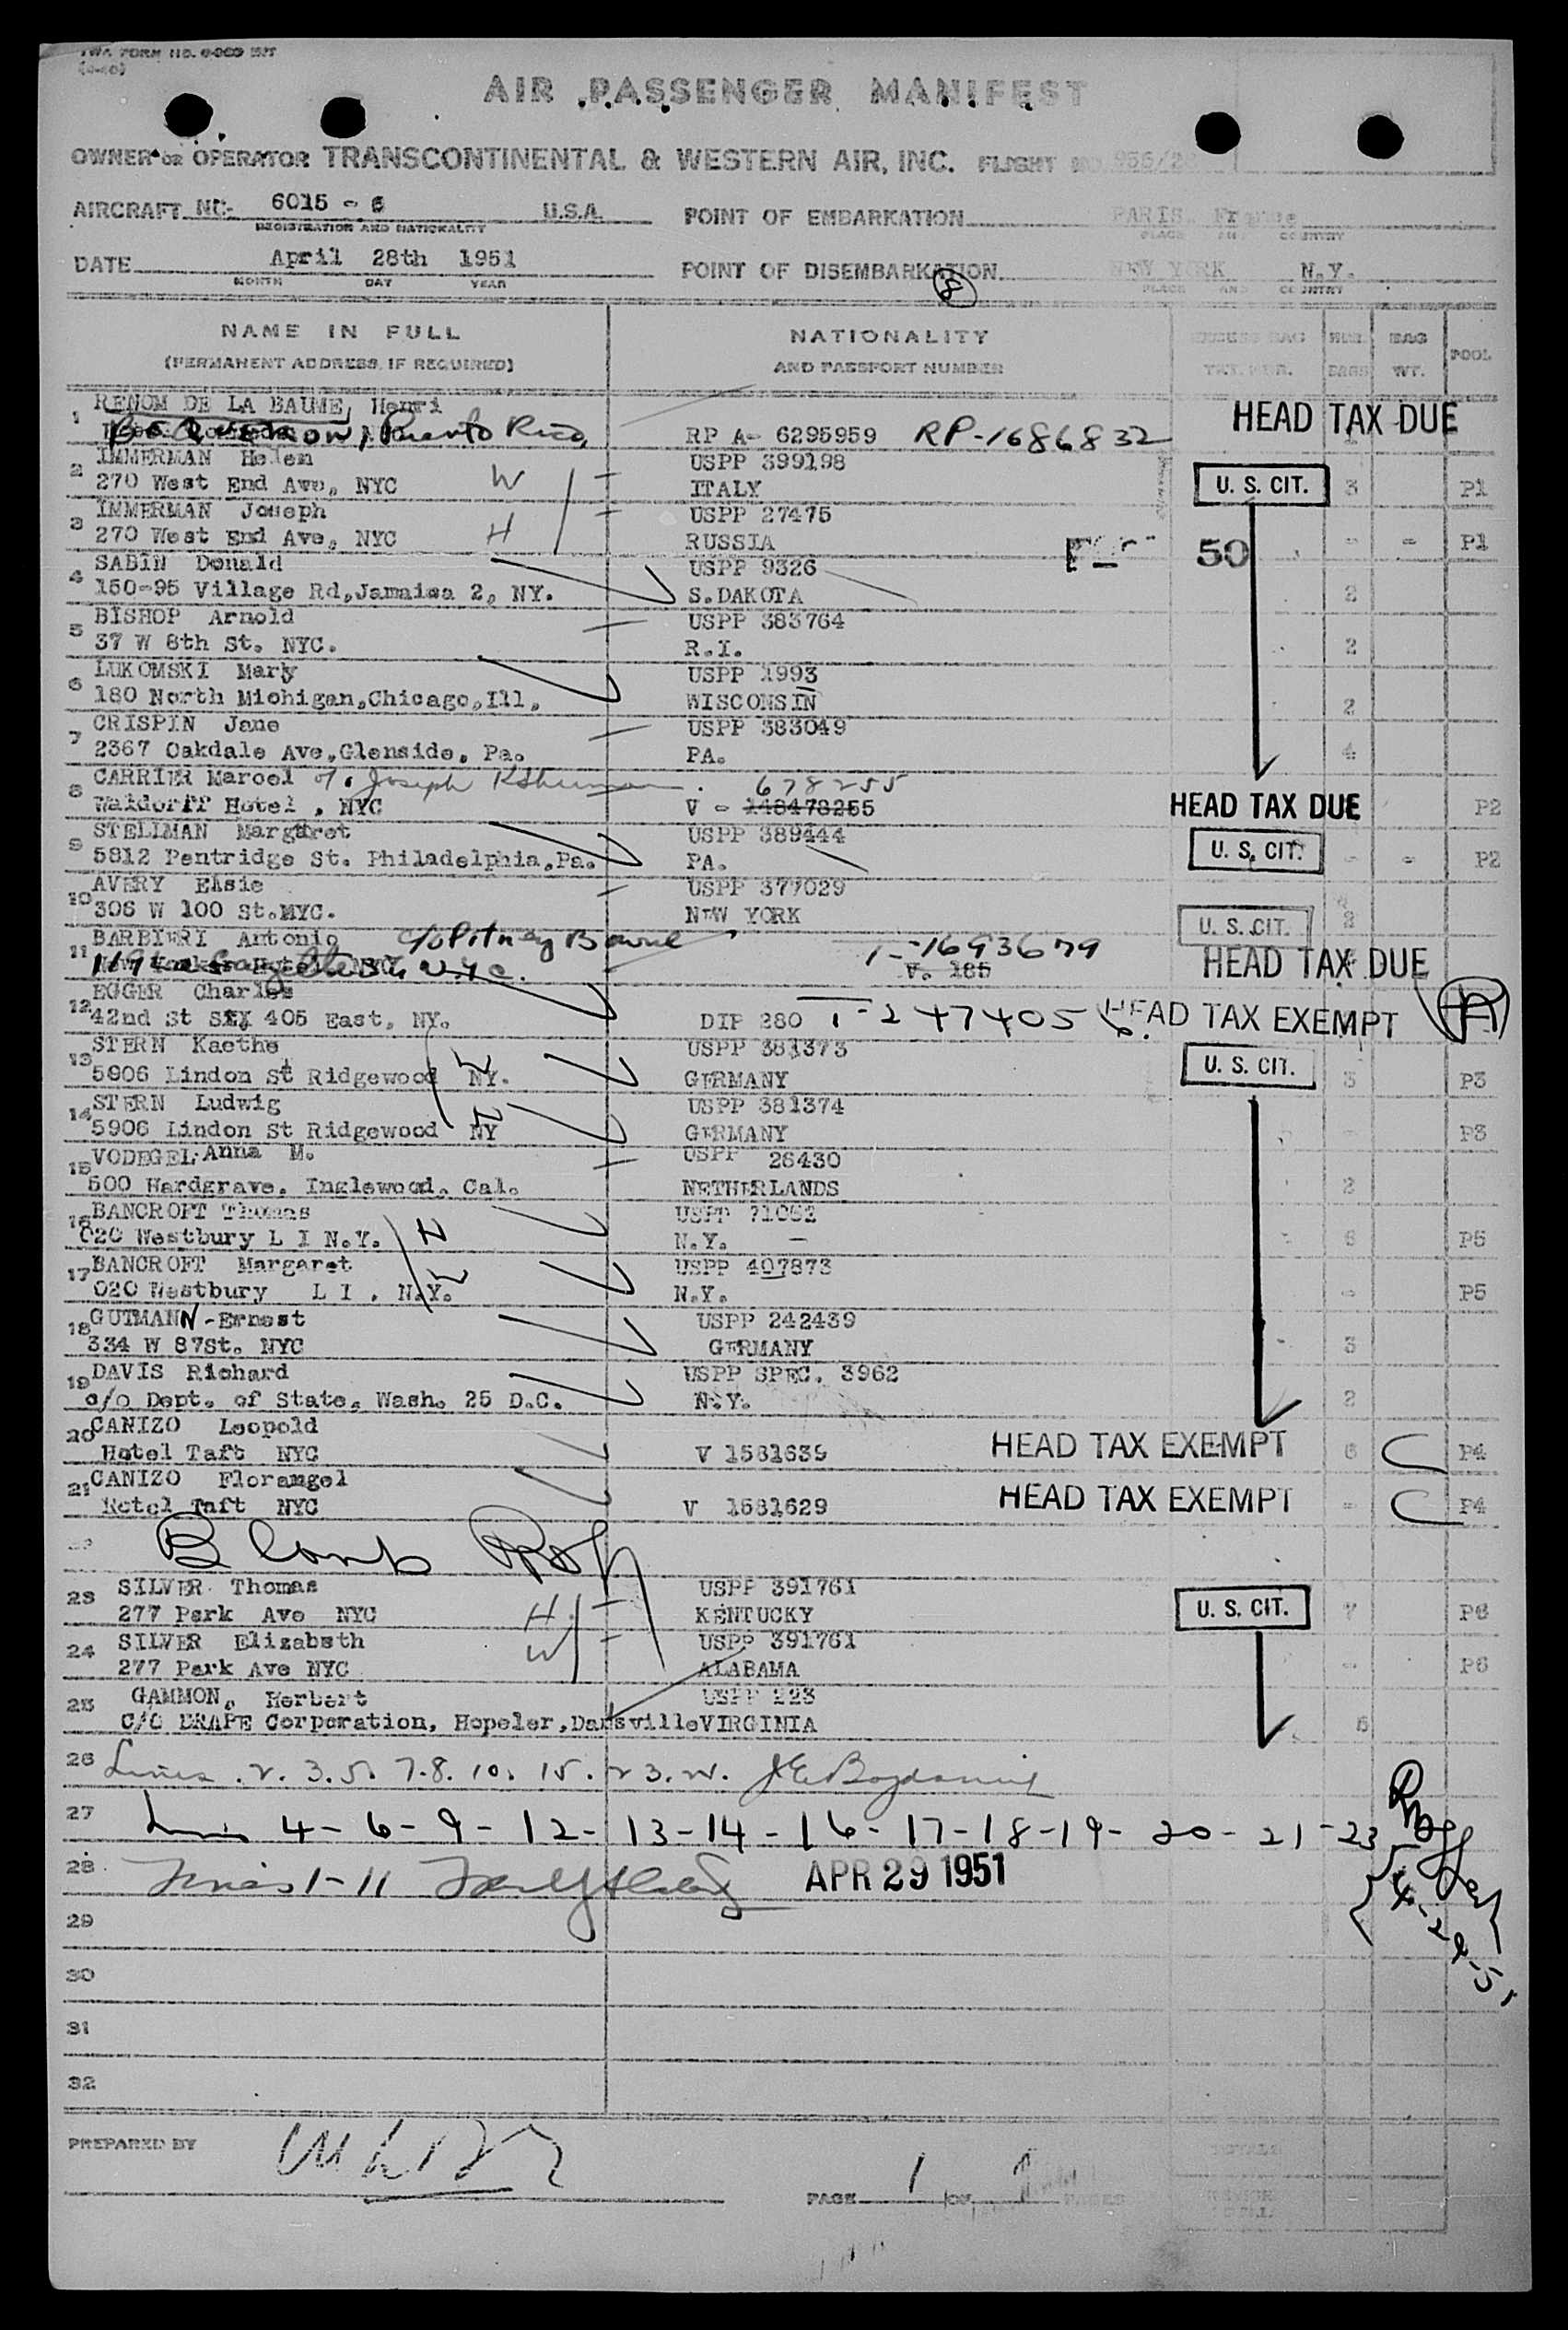 TWA FORM NO.
AIR PASSENGER MANIFEST
OWNER OR OPERATOR TRANSCONTINENTAL & WESTERN AIR, INC. FLIGHT NO.
AIRCRAFT NC- 6015 - 6 U.S.A. POINT OF EMBARKATION PARIS, France
REGISTRATION AND NATIONALITY PLACE AND COUNTRY
DATE April 28th 1951 POINT OF DISEMBARKATION NEW YORK N.Y.
MONTH DAY YEAR PLACE AND COUNTRY
8
NAME IN FULL NATIONALITY EXCESS BAG NBR. BAG POOL
(PERMANENT ADDRESS IF REQUIRED) AND PASSPORT NUMBER TKT. NBR. BAGS WT.
1 RENOM DE LA BAUME, Henri HEAD TAX DUE
Puerto Rico, RP A- 6295959 RP-1686832
2 IMMERMAN Helen USPP 399198
270 West End Ave, NYC W ITALY U. S. CIT. 3 P1
3 IMMERMAN Joseph USPP 27475
270 West End Ave, NYC H RUSSIA 50 - - P1
4 SABIN Donald USPP 9326
150-95 Village Rd,Jamaica 2, NY. S.DAKOTA 2
5 BISHOP Arnold USPP 383764
37 W 8th St. NYC. R.I. 2
6 LUKOMSKI Mary USPP 1993
180 North Michigan,Chicago,Ill, WISCONSIN 2
7 CRISPIN Jane USPP 383049
2367 Oakdale Ave,Glenside, Pa. PA. 4
8 CARRIER Marcel Joseph 678255
Waldorff Hotel , NYC V - 148478255 HEAD TAX DUE P2
9 STELLMAN Margaret USPP 389444
5812 Pentridge St. Philadelphia,Pa. PA. U. S. CIT. - - P2
10 AVERY Elsie USPP 377029
306 W 100 St.NYC. NEW YORK U. S. CIT. 3
11 BARBIERI Antonio c/o Pitney Bowne T-1693679
N.Y.C. V. 185 HEAD TAX DUE
12 EGGER Charles
42nd St 405 East, NY. DIP 280 T-247405 HEAD TAX EXEMPT
13 STERN Kaethe USPP 381373
5906 Lindon St Ridgewood NY. W GERMANY U. S. CIT. 3 P3
14 STERN Ludwig USPP 381374
5906 Lindon St Ridgewood NY H GERMANY - P3
15 VODEGEL Anna M. USPP 26430
500 Hardgrave. Inglewood. Cal. NETHERLANDS 2
16 BANCROFT Thomas USPP 71052
020 Westbury L I N.Y. H N.Y. 6 P5
17 BANCROFT Margaret USPP 407873
020 Westbury L I . N.Y. W N.Y. - P5
18 GUTMANN-Ernest USPP 242439
334 W 87St. NYC GERMANY 3
19 DAVIS Richard USPP SPEC. 3962
c/o Dept. of State, Wash. 25 D.C. N.Y. 2
20 CANIZO Leopold
Hotel Taft NYC V 1581639 HEAD TAX EXEMPT 6 C P4
21 CANIZO Florangel
Hotel Taft NYC V 1581629 HEAD TAX EXEMPT - C P4
23 SILVER Thomas USPP 391761
277 Park Ave NYC H KENTUCKY U. S. CIT. 7 P6
24 SILVER Elizabeth USPP 391761
277 Park Ave NYC W ALABAMA - P6
25 GAMMON, Herbert USPP 223
C/O DRAPE Corporation, Hopeler,Dansville VIRGINIA 5
26 Lines . 2. 3. 5. 7. 8. 10. 15. 23. 24.
27 Lines 4-6-9-12-13-14-16-17-18-19-20-21-23
28 Lines 1-11 APR 29 1951
4-29-51
29
30
31
32
PREPARED BY TOTALS
PAGE 1 OF 1 PAGES